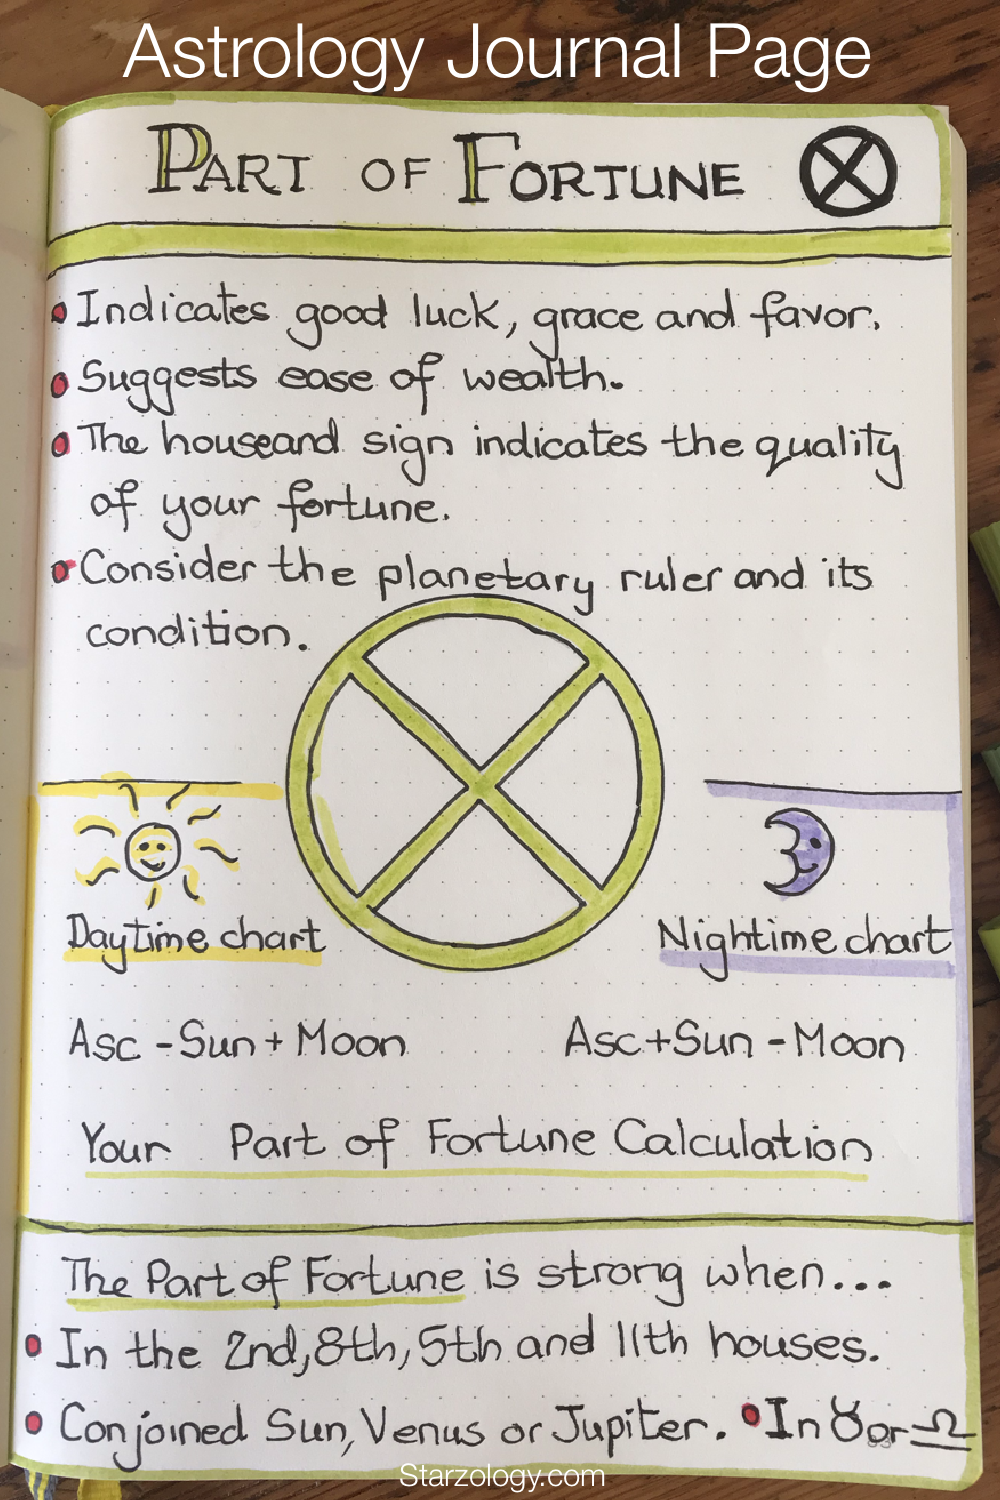 Astrology Journal Page
PART OF FORTUNE
Indicates good luck, grace and favor.
Suggests ease of wealth.
The houseand sign indicates the quality
of your fortune.
Consider the planetary ruler and its
condition.
Daytime chart
Nightime chart
Asc - Sun + Moon
Asc + Sun - Moon
Your Part of Fortune Calculation
The Part of Fortune is strong when...
In the 2nd, 8th, 5th and 11th houses.
Conjoined Sun, Venus or Jupiter. • In ♉ or ♎
Starzology.com